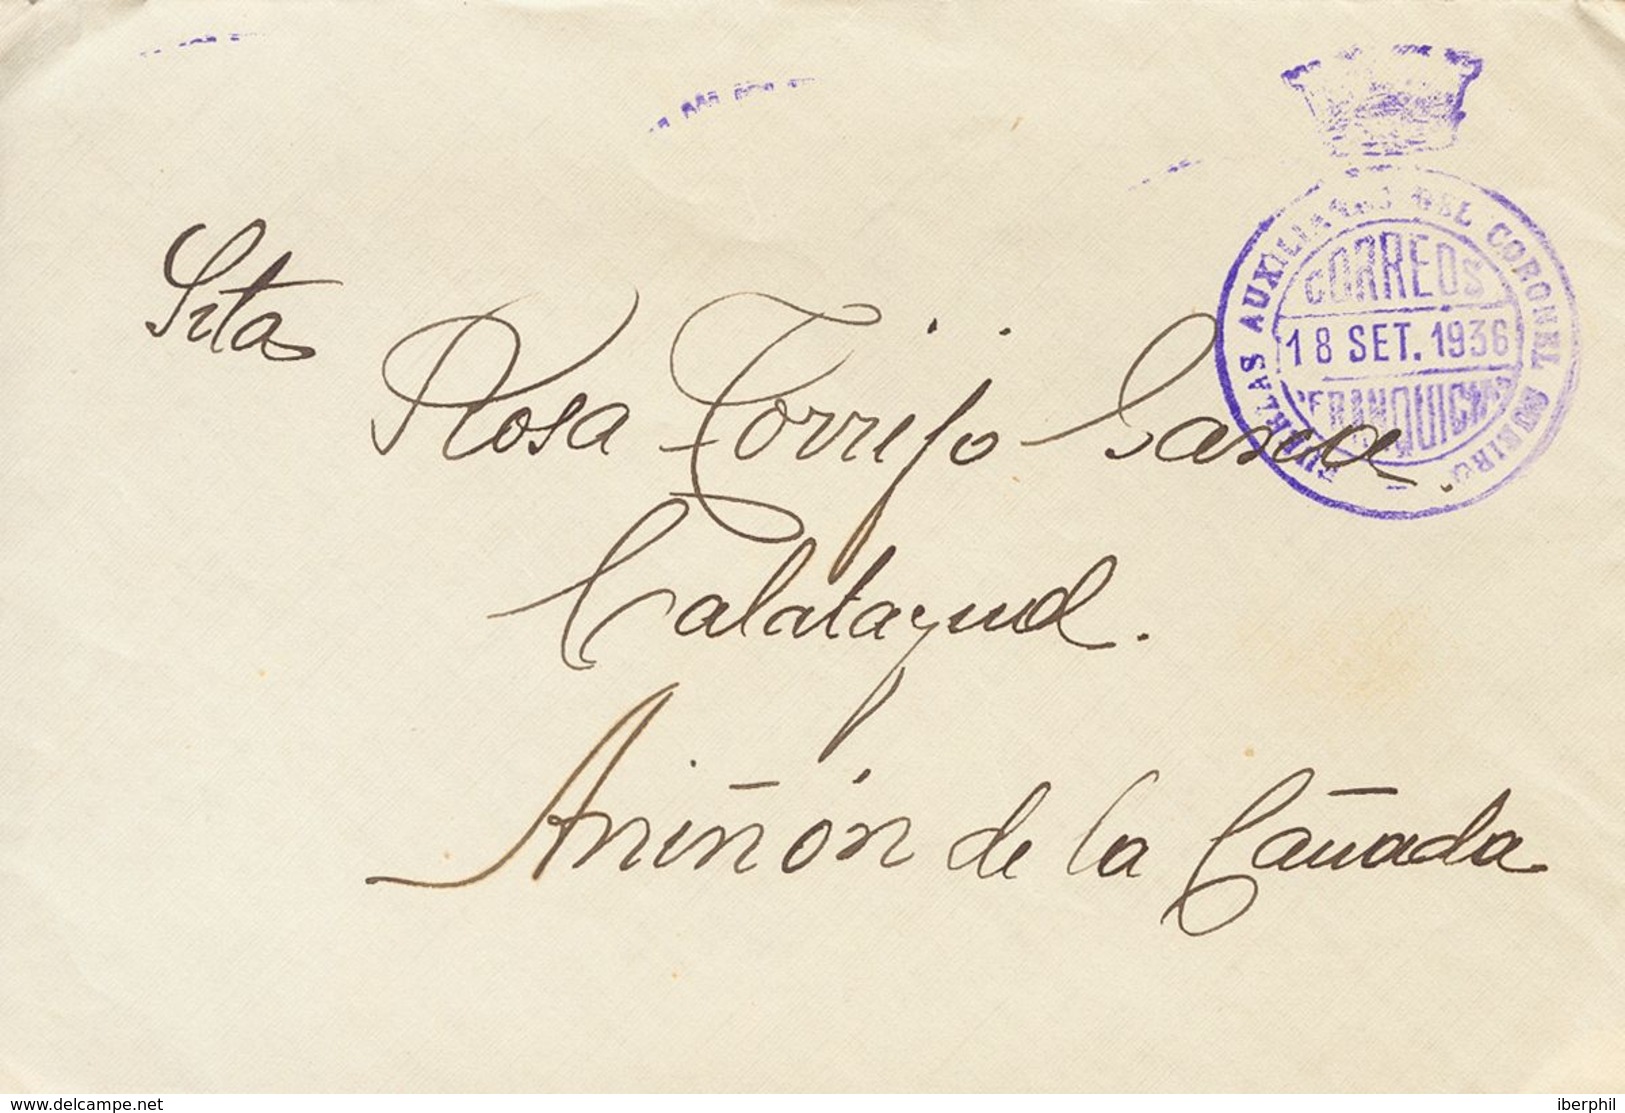 FUERZAS AUXILIARES DEL CORONEL
CORREOS
18 SET. 1936
FRANQUICIA
Srta
Rosa Torrijo Garcia
Calatayud.
Aniñón de la Cañada
www.delcampe.net
iberphil